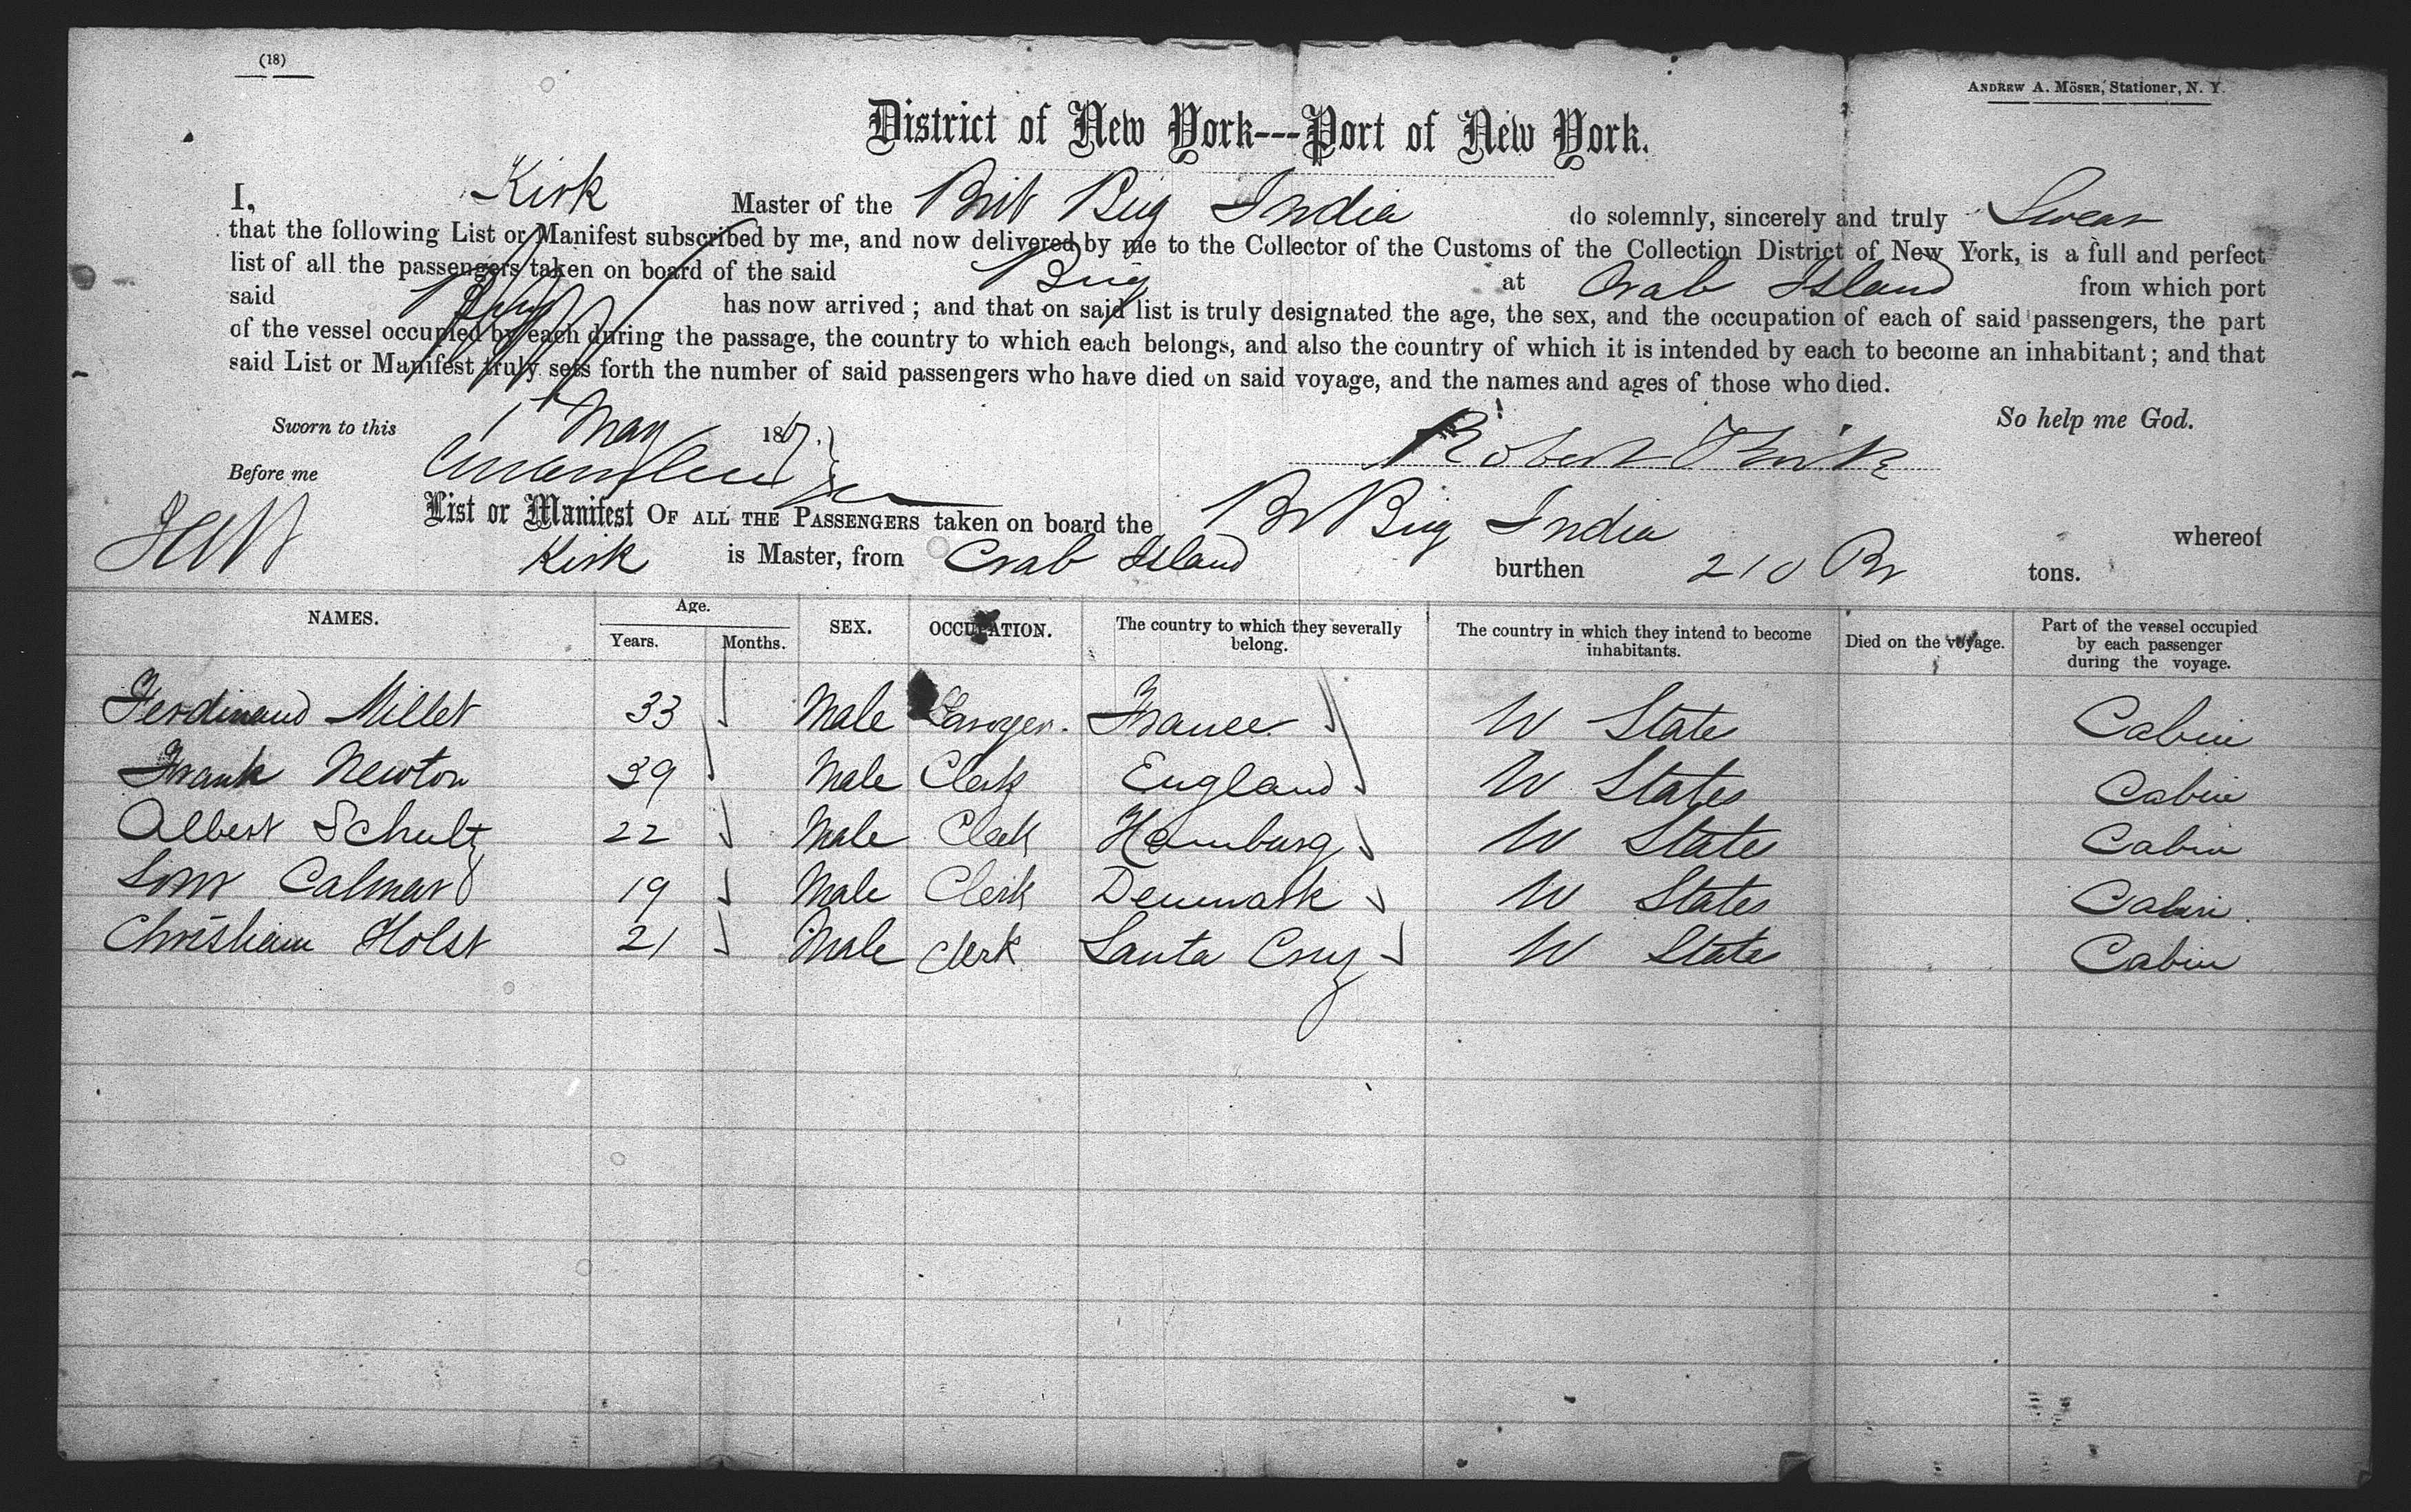 (18)
ANDREW A. MÖSER, Stationer, N. Y.
District of New York---Port of New York.
I, Kirk Master of the Brit Brig India do solemnly, sincerely and truly Swear
that the following List or Manifest subscribed by me, and now delivered by me to the Collector of the Customs of the Collection District of New York, is a full and perfect
list of all the passengers taken on board of the said Brig at Crab Island from which port
said Brig has now arrived; and that on said list is truly designated the age, the sex, and the occupation of each of said passengers, the part
of the vessel occupied by each during the passage, the country to which each belongs, and also the country of which it is intended by each to become an inhabitant; and that
said List or Manifest truly sets forth the number of said passengers who have died on said voyage, and the names and ages of those who died.
So help me God.
Sworn to this 1st May 187
Robert Kirk
Before me
List or Manifest OF ALL THE PASSENGERS taken on board the Br Brig India whereof
Kirk is Master, from Crab Island burthen 210 Br tons.
NAMES. Age. Years. Months. SEX. OCCUPATION. The country to which they severally belong. The country in which they intend to become inhabitants. Died on the voyage. Part of the vessel occupied by each passenger during the voyage.
Ferdinand Millet 33 Male Lawyer. France U State Cabin
Frank Newton 39 Male Clerk England U States Cabin
Albert Schultz 22 Male Clerk Hamburg U States Cabin
Calmar 19 Male Clerk Denmark U States Cabin
Christian Holst 21 Male Clerk Santa Cruz U States Cabin